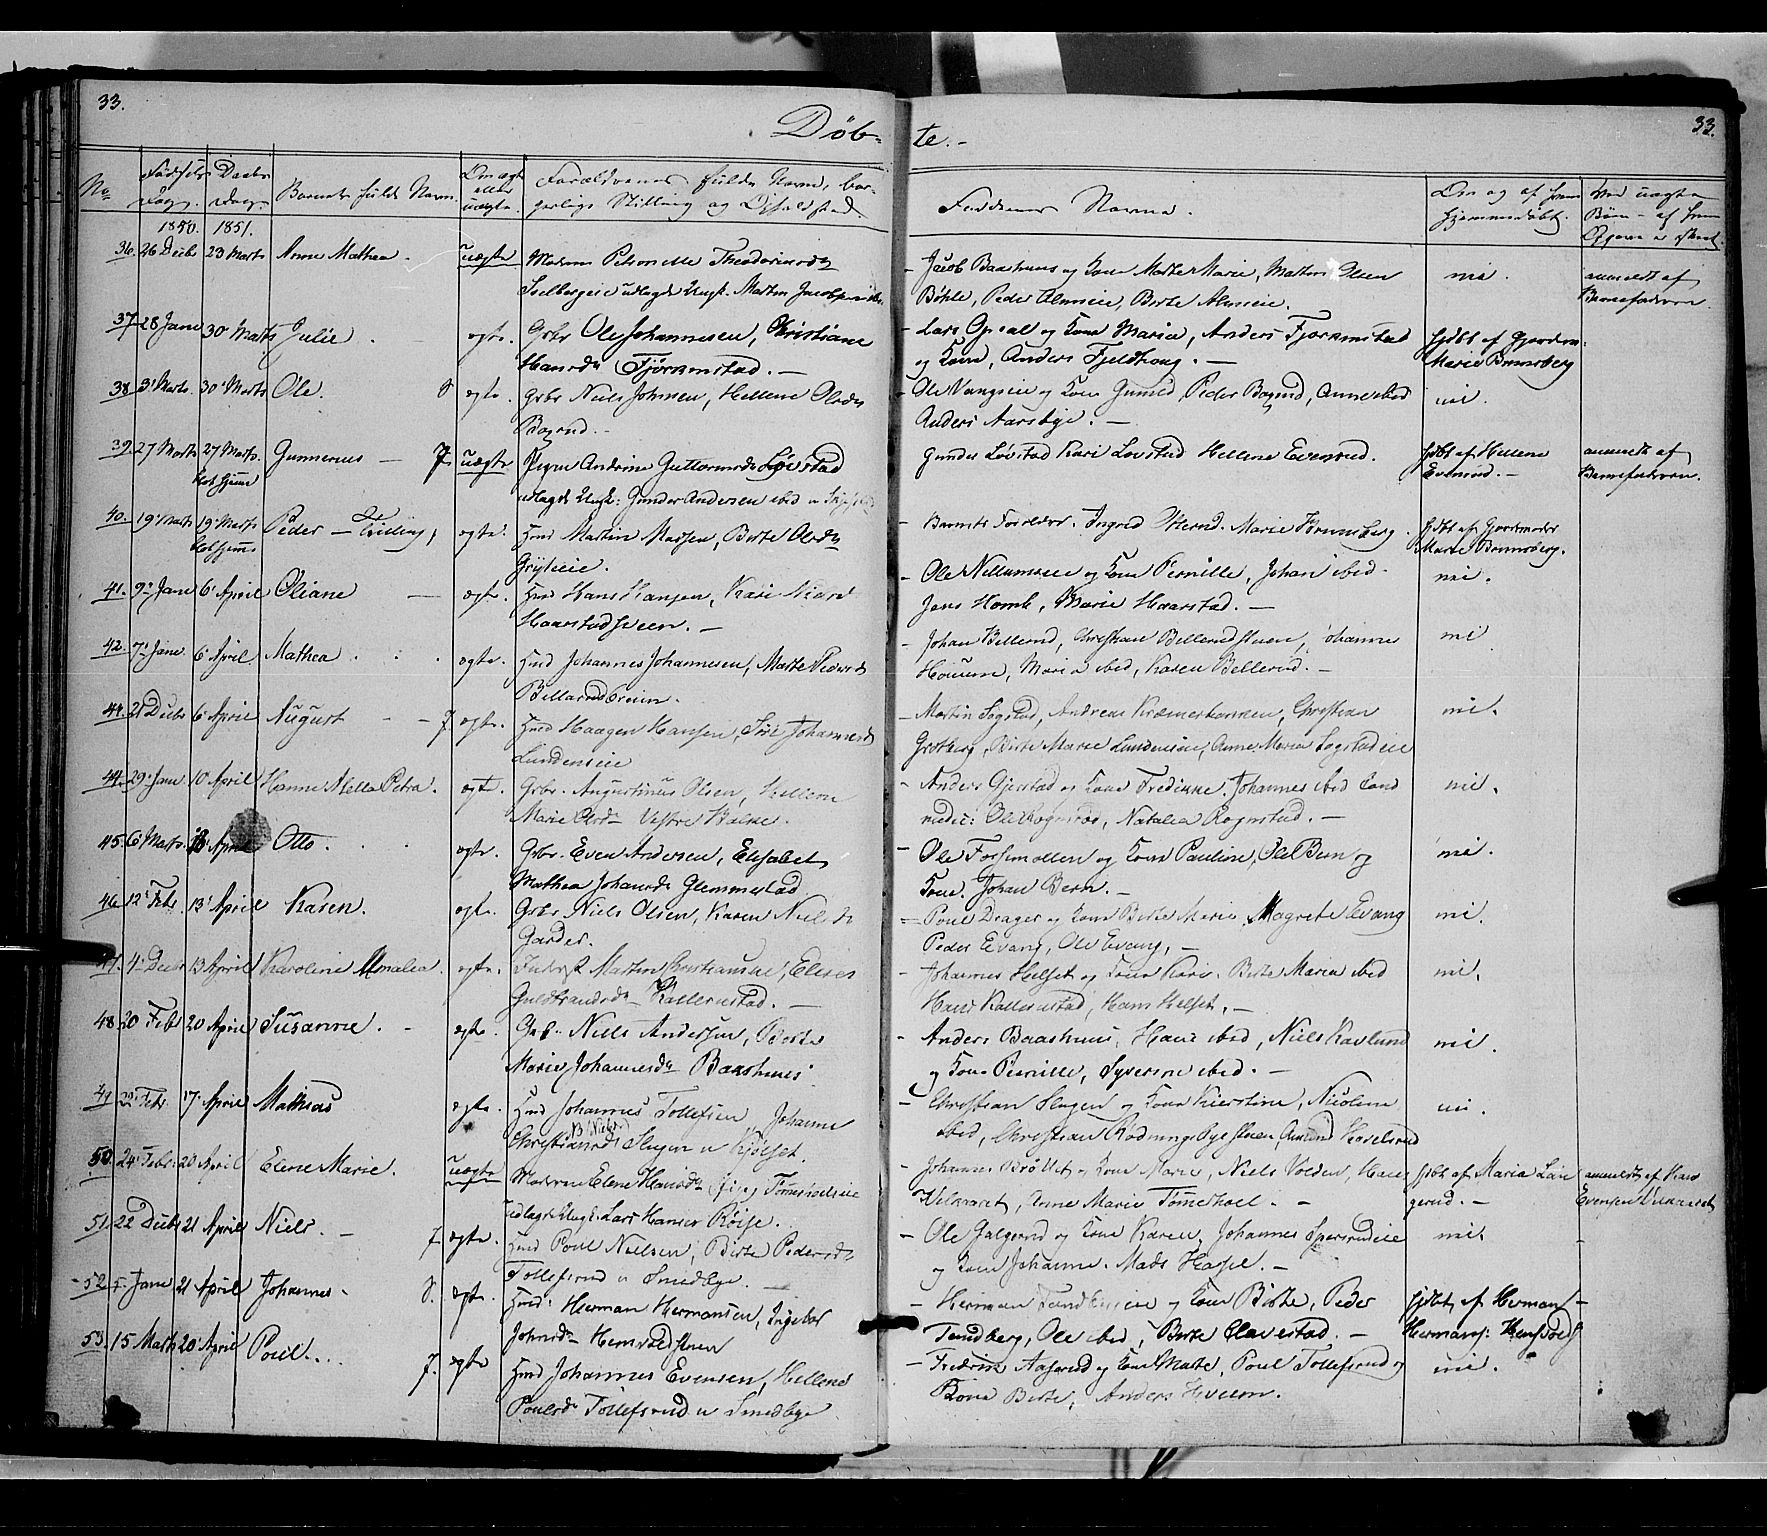 33.
33.
Døb-
te.-
No
Fødsels
Dag.
Daabs
Dag.
Barnets fulde Navn.
Om ægte
eller
uægte.
Forældrenes fulde Navn, bor-
gerlige Stilling og Opholdsted
Faddernes Navne.
Om og af hvem
hjemmedøbt.
Ved uægte
Børn - af hvem
Opgave er skeet.
1850. 1851.
36. 26 Decbr 23 Marts Anne Mathea. uægte
Moderen Petronille Theodorinsdr
udlagt Ungk. Martin Jacobsen
- Jacob Baashuus og Kone Marthe Marie, Mathias Olsen
Bøhle, Peder Almseie, Berte Almseie.
nei.
anmeldt af
Barnefaderen.
37. 28 Janr 30 Marts Julie. ægte.
Grbr Ole Johannesen, Christiane
Hansdr Fjørkenstad. -
- Lars Opsal og Kone Maria, Anders Fjørkenstad
og Kone, Anders Fjeldhoug. -
hjdbt af Gjordem.
Marie Brunsberg
38. 3 Marts 30 Marts Ole. S ægte.
Grbr Niels Johnsen, Hellene Olsdr
Bøgrud. -
- Ole Vangseie og Kone Gunild, Peder Bøgrud, Anne ibid
Anders Aarsbye. -
nei.
39. 27 Marts 27 Marts Gunnerius - 7. uægte
døbt hjemme
Pigen Andrine Guttormsdr Løvstad
udlagt Ungk: Gunder Andersen ibid
Gunder Løvstad Kari Løvstad Hellene Evensrud.
hjdbt af Hellene
Evensrud. -
anmeldt af
Barnefaderen.
40. 19 Marts 19 Marts Peder - Tvilling, ægte.
døbt hjemme
Hmd Martin Madsen, Berte Olsdr
- Barnets Forældre. Ingrid Marie Brunsberg.
hjdbt af Gjordemoder
Marie Brunsberg.
41. 9 Janr 6 April Oliane - ægte.
Hmd Hans Hansen, Kari Nielsd
Haarstadsveen. -
- Ole Nellumseie og Kone Pernille, Johan ibid
Jens Homb, Marie Haarstad. -
nei.
42. 7 Janr 6 April Mathea. ægte.
Hmd Johannes Johannesen, Marthe Pedersdr
- Johan Bellerud, Christian Bellerudstuen, Johanne
Maria ibid, Karen Bellerud. -
nei
44. 21 Decbr 6 April August - - 7. ægte.
Hmd Haagen Hansen, Siri Johannesdr
Lundenseie
- Martin Sogstad, Andreas Christian
Grøtberg, Berte Marie Lundenseie, Anne Maria Sogstadeie
nei.
44. 29 Janr 10 April Hanne Mella Petra. ægte.
Grbr. Augustinus Olsen, Hellene
Marie Vestre Balke.
- Anders Gjerstad og Kone Fredikke. Johannes ibid Cand
medic: Ole Rognstad, Natalia Rognstad. -
nei.
45. 6 Marts 13 April Otto. ægte.
Grbr. Even Andersen, Elisabet
Mathea Johansdr Glemmestad
- Ole Forsemollen og Kone Pauline, Ole Bern og
Kone. Johan Bern. -
nei.
46. 12 Febr. 13 April Karen. ægte.
Grbr Niels Olsen, Karen Nielsdr
Garder.
- Poul Drager og Kone Berte Marie. Magrete Evang
Peder Evang, Ole Evang, -
nei.
47. 4 Decbr 13 April Karoline Amalea. ægte.
Inderst Martin Christiansen, Elises
Guldbrandsdr Kallerustad. -
- Johannes Helset og Kone Kari. Berte Maria ibid
Hans Kallerustad, Hans Helset. -
nei.
48. 20 Febr 20 April Susanne. - ægte.
Grbr. Niels Andersen, Berte
Marie Johannesdr Baashuus
- Anders Baashuus, Hans ibid, Niels Kavlund
og Kone Pernille, Syverine ibid. -
nei.
49. 22 Febr. 17 April Mathias ægte.
Hmd Johannes Tollefsen Johanne
Christiansdr Slugen u Kjølset.
- Christian Slugen og Kone Kierstine, Nicoline
ibid, Christian Rødningsbyestuen, Amund Haslerud
nei.
50. 24 Febr. 20 April Elene Marie. uægte
Moderen Elene Hansdr Pige Tømmerholseie
udlagt Ungk: Lars Hansen Røise.
- Johannes Brøttet og Kone Marie, Niels Volden, Hans
Vilvaret, Anne Marie Tømerhoel. -
hjdbt af Maria Lau-
gerud. -
anmeldt af Hans
Evensen
51. 22 Decbr 21 April Niels. - 7. ægte.
Hmd Poul Nielsen, Berte Pedersdr
Tollefsrud u Smedbye. -
- Ole Galgerud og Kone Karen, Johannes Spersrudeie
og Kone Johanne. Mads Hasle. -
nei
52. 5 Janr 21 April Johannes. S. ægte.
Hmd: Herman Hermansen, Ingebor
Johnsdr Hensvoldstuen
- Herman og Kone Berte, Peder
Tandberg, Ole ibid, Berte Elavestad. -
hjdbt af Herman
Hermans: Hensvold
53. 15 Marts 20 April Poul. 7. ægte
Hmd Johannes Evensen, Hellene
Poulsdr Tollefsrud u Smedbye
- Fredrik Aasrud og Kone Marte, Poul Tollefsrud og
Kone Berte, Anders Hveem.
nei.